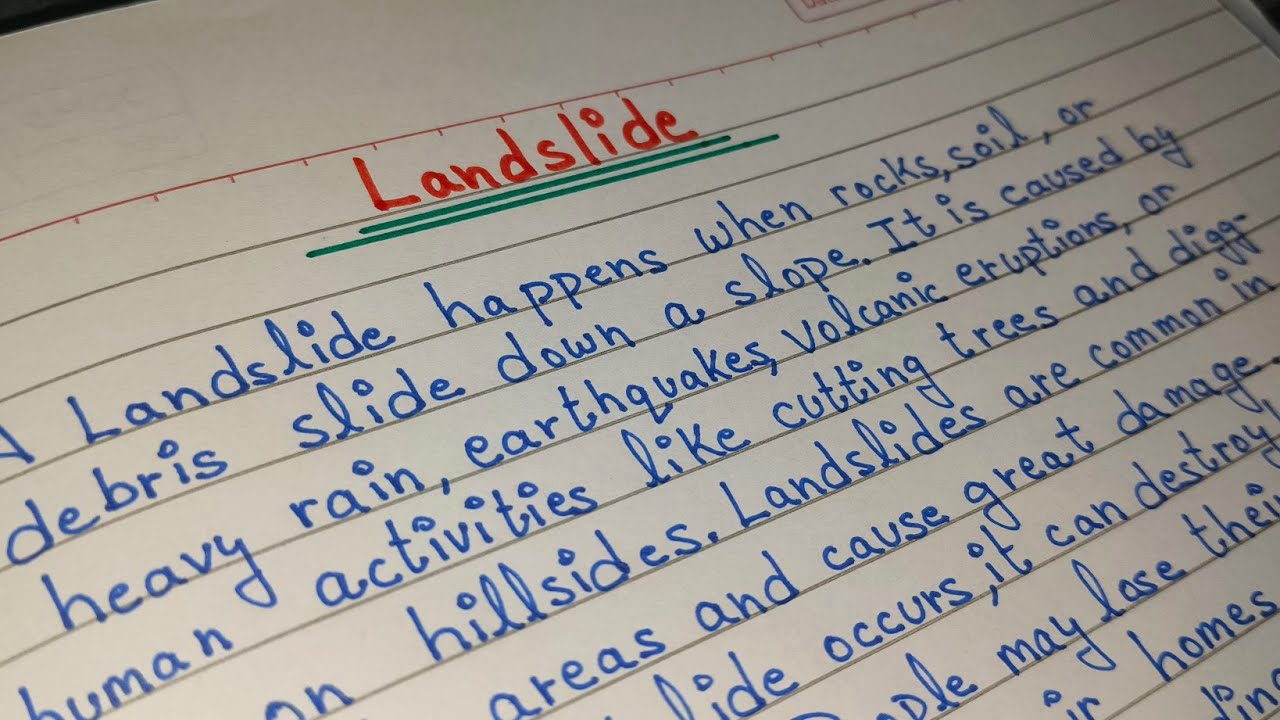 Landslide
A Landslide happens when rocks, soil, or
debris slide down a slope. It is caused by
heavy rain, earthquakes, volcanic eruptions, or
human activities like cutting trees and digg-
on hillsides. Landslides are common in
areas and cause great damage.
occurs, it can destroy
may lose their
homes